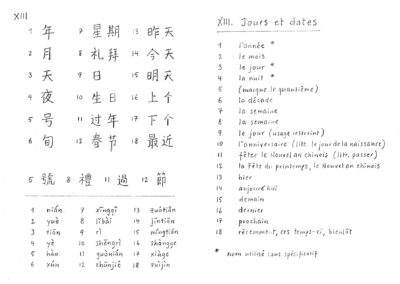 XIII
1 年 7 星期 13 昨天
2 月 8 礼拜 14 今天
3 天 9 日 15 明天
4 夜 10 生日 16 上个
5 号 11 过年 17 下个
6 旬 12 春节 18 最近
5 號 8 禮 11 過 12 節
1 nián 7 xīngqī 13 zuótiān
2 yuè 8 lǐbài 14 jīntiān
3 tiān 9 rì 15 míngtiān
4 yè 10 shēngrì 16 shàngge
5 hào 11 guònián 17 xiàge
6 xún 12 chūnjié 18 zuìjìn
XIII. Jours et dates
1 l'année *
2 le mois
3 le jour *
4 la nuit *
5 (marque le quantième)
6 la décade
7 la semaine
8 la semaine
9 le jour (usage restreint)
10 l'anniversaire (litt. le jour de la naissance)
11 fêter le Nouvel an chinois (litt. passer)
12 la Fête du printemps, le Nouvel an chinois
13 hier
14 aujourd'hui
15 demain
16 dernier
17 prochain
18 récemment, ces temps-ci, bientôt
* nom utilisé sans spécificatif